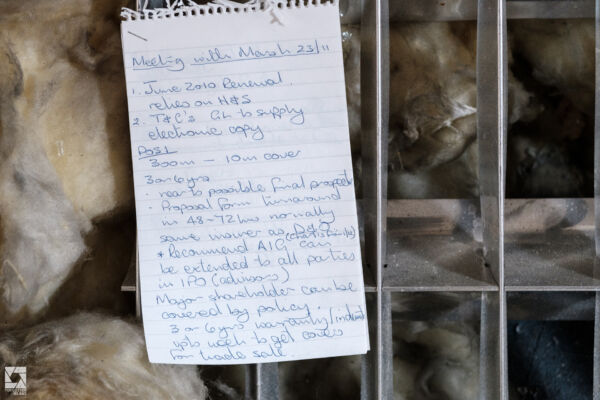 Meeting with Marsh 23/11
1. June 2010 Renewal.
relies on H&S
2. T&C's GL to supply
electronic copy
POSI
300m - 10m cover
3 or 6 yrs
. near to possible final prospect
. Proposal form turnaround
in 48-72 hrs normally
same insurer as D&O
(Chartis in Ire)
* Recommend AIG can
be extended to all parties
in IPO (advisors)
Major shareholder can be
covered by policy.
3 or 6 yrs warranty/
up to week to get cover
for trade sale.